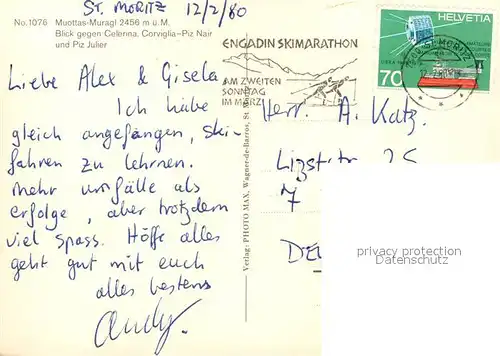 ST. MORITZ 12/2/80
No. 1076 Muottas-Muragl 2456 m ü. M.
Blick gegen Celerina, Corviglia-Piz Nair
und Piz Julier
Liebe Alex & Gisela
Ich habe
gleich angefangen, Ski-
fahren zu lehrnen.
mehr unfälle als
erfolge, aber trotzdem
viel spass. Hoffe alles
geht gut mit euch
alles bestens
Andy.
Verlag: PHOTO MAX, Wagner-de-Barros, St. Moritz
ENGADIN SKIMARATHON
AM ZWEITEN
SONNTAG
IM MÄRZ
HELVETIA
70
ST. MORITZ
Herr. A. Katz.
7
privacy protection
Datenschutz